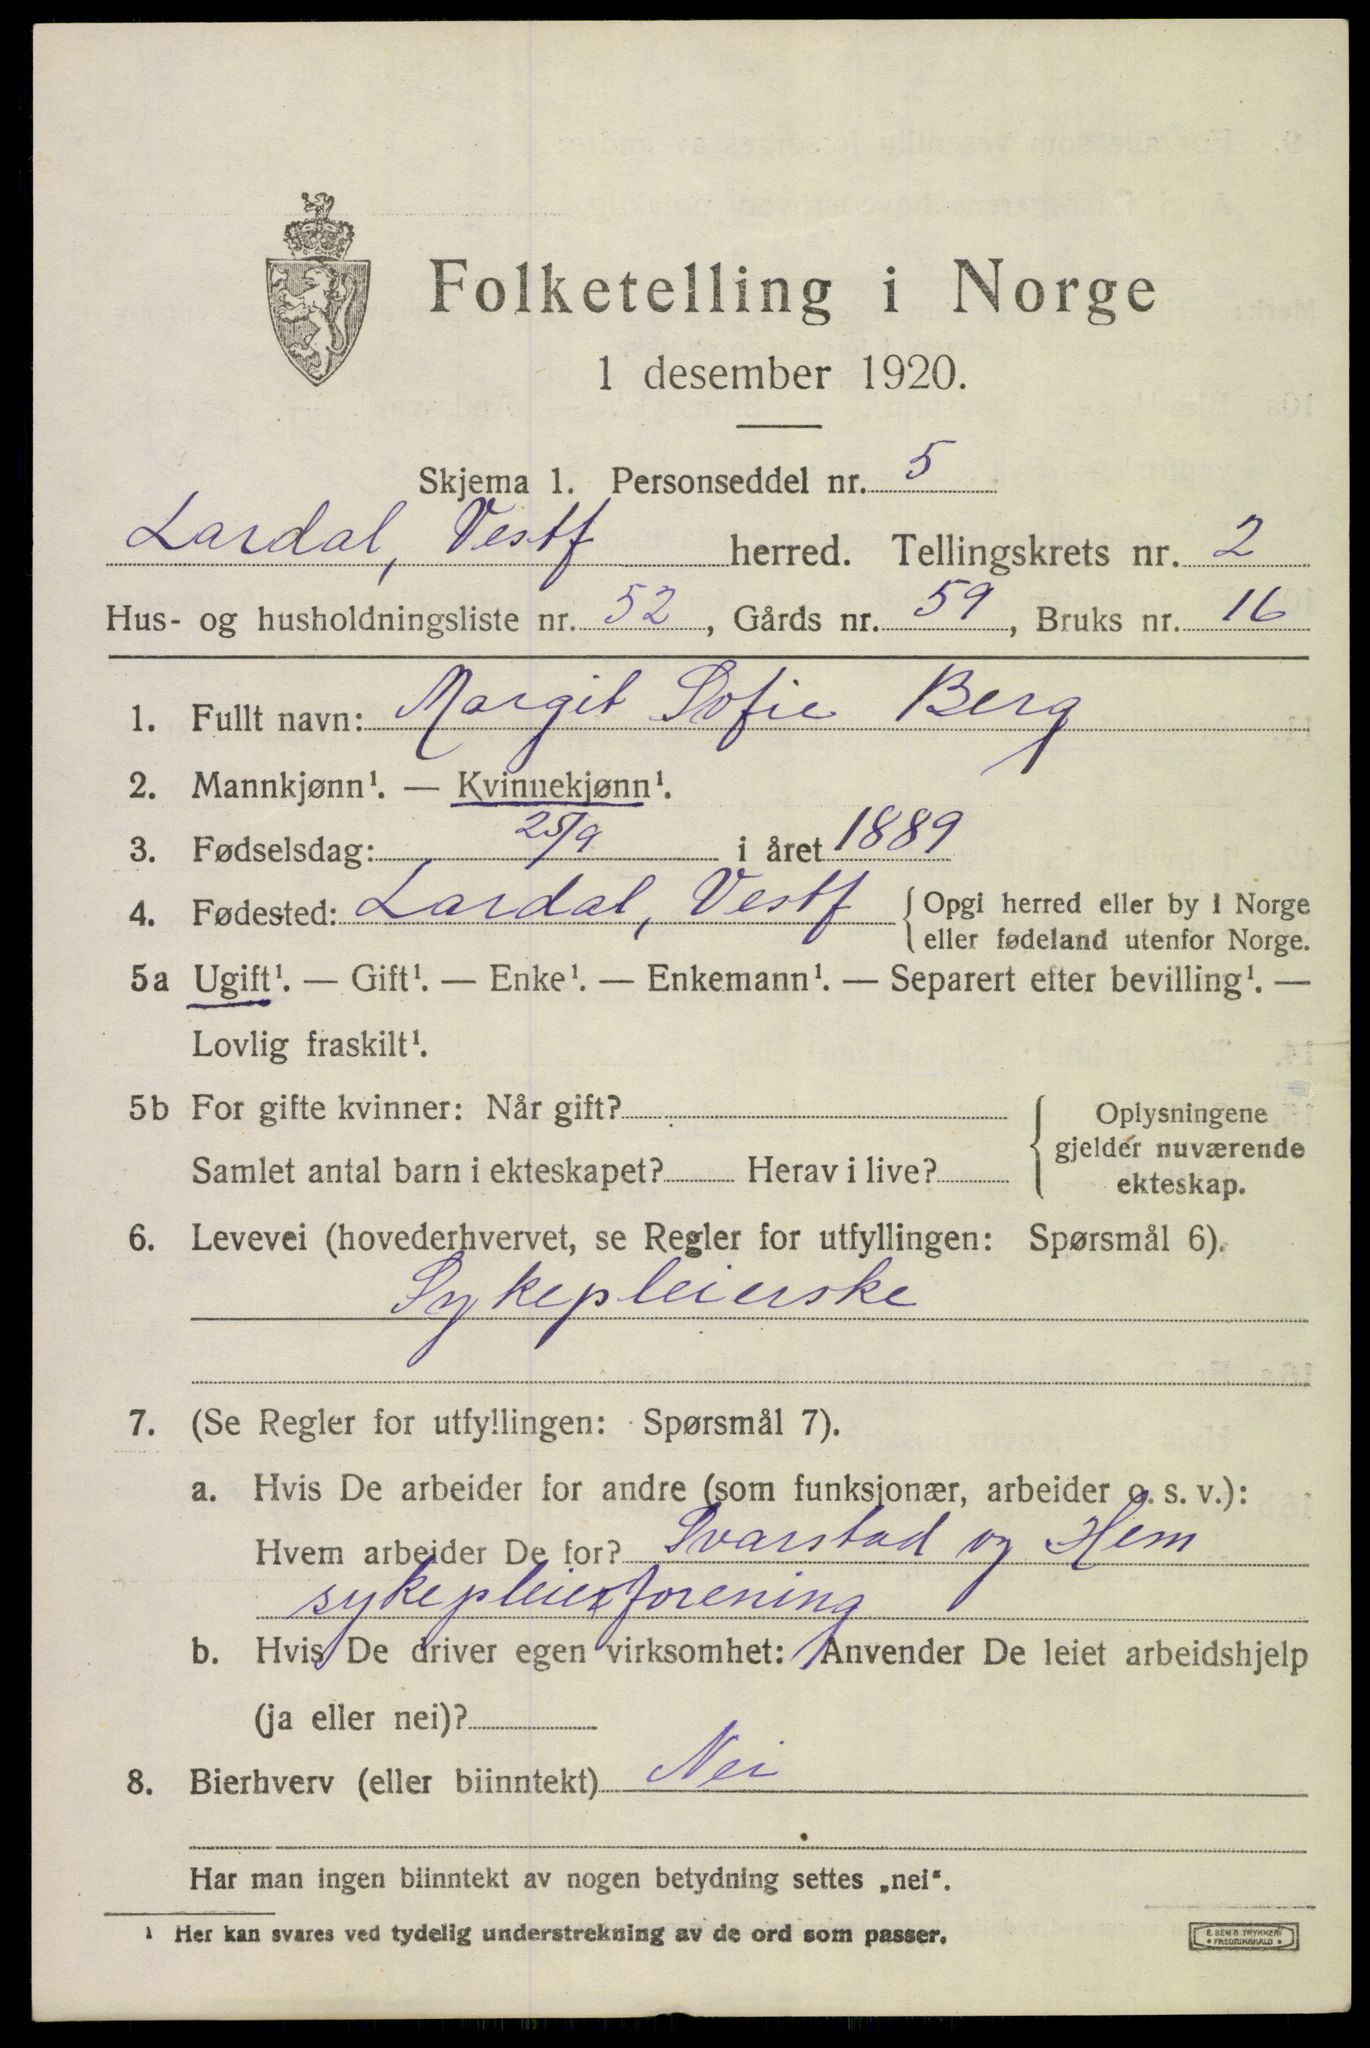 Folketelling i Norge
1 desember 1920.
Skjema 1. Personseddel nr. 5
Lardal, Vestf herred. Tellingskrets nr. 2
Hus- og husholdningsliste nr. 52, Gårds nr. 59, Bruks nr. 16
1. Fullt navn: Margit Sofie Berg
2. Mannkjønn¹. — Kvinnekjønn¹.
3. Fødselsdag: 25/9 i året 1889
4. Fødested: Lardal, Vestf { Opgi herred eller by i Norge
eller fødeland utenfor Norge.
5a Ugift¹. — Gift¹. — Enke¹. — Enkemann¹. — Separert efter bevilling¹. —
Lovlig fraskilt¹.
5b For gifte kvinner: Når gift?
Samlet antal barn i ekteskapet? Herav i live?
{ Oplysningene
gjelder nuværende
ekteskap.
6. Levevei (hovederhvervet, se Regler for utfyllingen: Spørsmål 6).
Sykepleierske
7. (Se Regler for utfyllingen: Spørsmål 7).
a. Hvis De arbeider for andre (som funksjonær, arbeider o. s. v.):
Hvem arbeider De for? Svarstad og Hem
sykepleierforening
b. Hvis De driver egen virksomhet: Anvender De leiet arbeidshjelp
(ja eller nei)?
8. Bierhverv (eller biinntekt) Nei
Har man ingen biinntekt av nogen betydning settes „nei“.
¹ Her kan svares ved tydelig understrekning av de ord som passer.
E. SEM'S TRYKKERI
* FREDRIKSHALD *